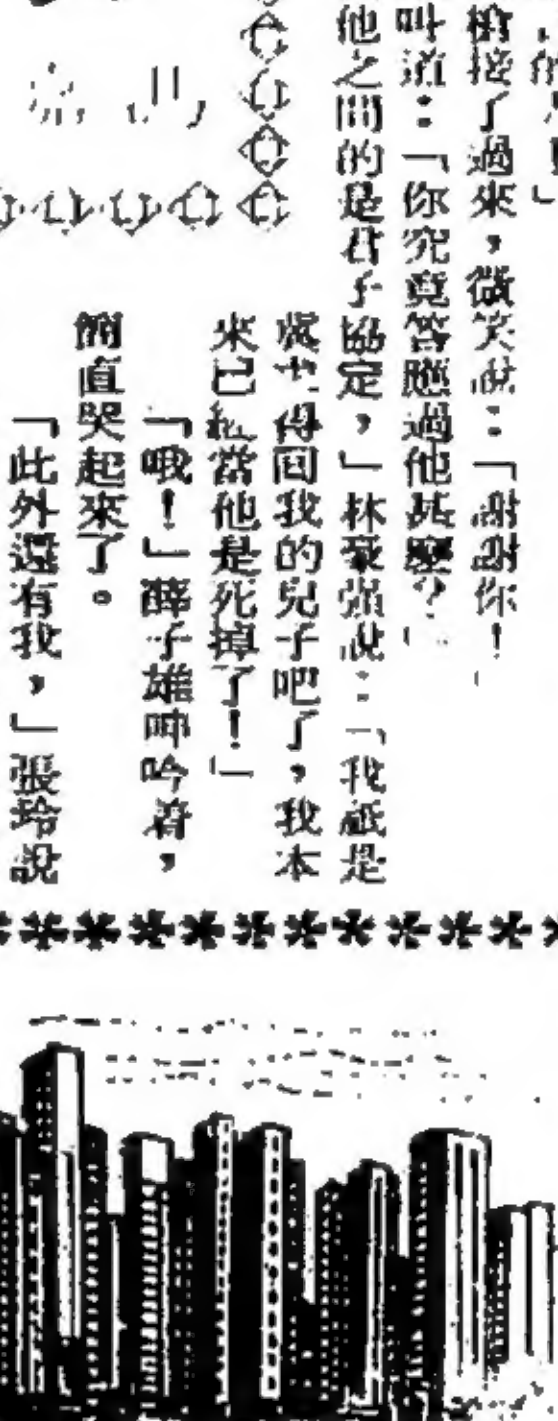 的！」
槍接了過來，微笑說：「謝謝你！
叫道：「你究竟答應過他甚麼？
他之間的是君子協定，」林豪強說：「我祇是
得回我的兒子吧了，我本
來已經當他是死掉了！」
「哦！」薛子雄呻吟着，
簡直哭起來了。
「此外還有我，」張玲說